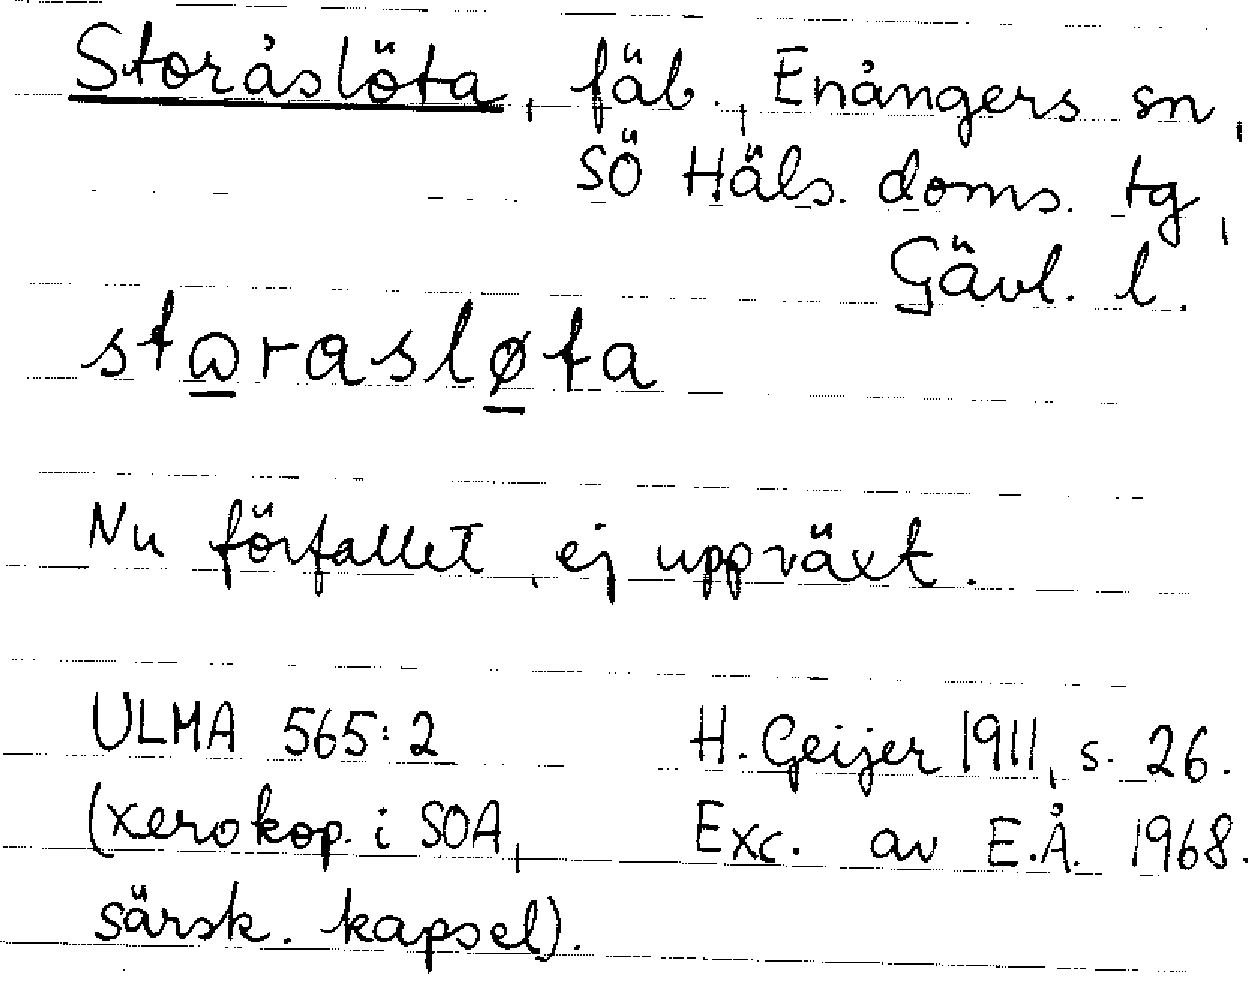 Storåslöta, fäb., Enångers sn,
SÖ Häls. doms. tg,
Gävl. l.
starasløta
Nu förfallet, ej uppväxt.
ULMA 565:2 H. Geijer 1911, s. 26.
(xerokop. i SOA, Exc. av E.Å. 1968.
särsk. kapsel).